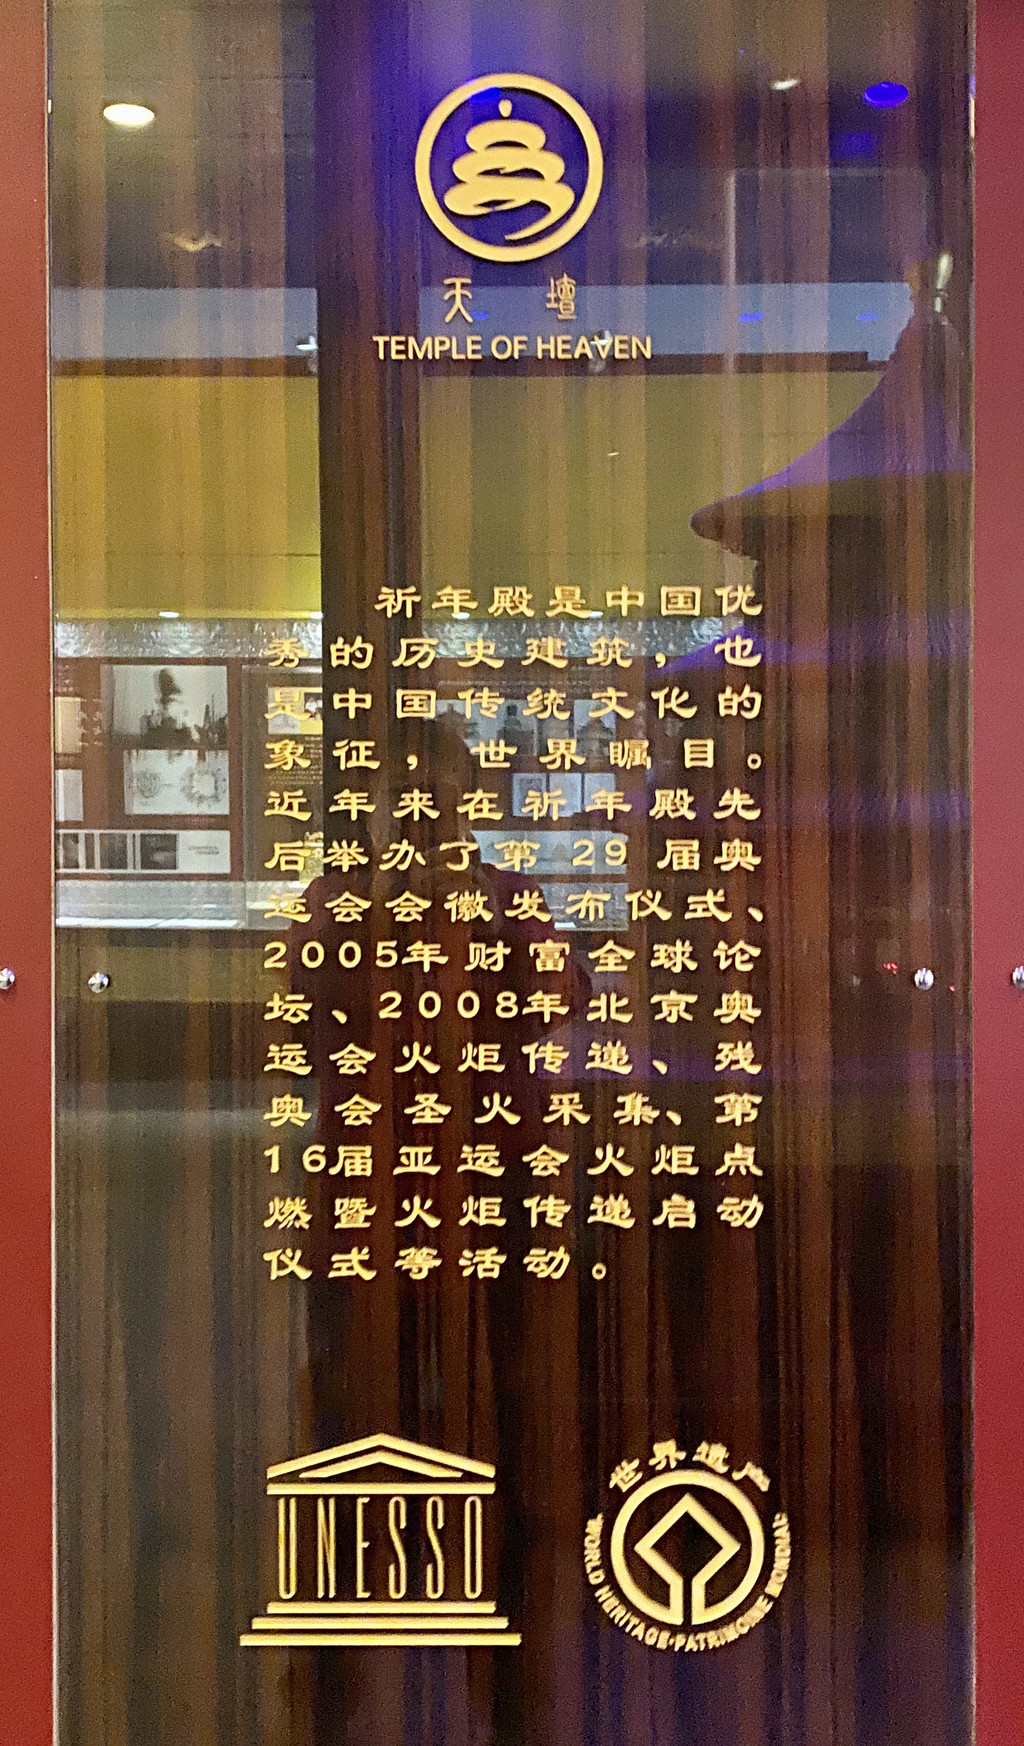 天壇
TEMPLE OF HEAVEN
祈年殿是中国优
秀的历史建筑，也
是中国传统文化的
象征，世界瞩目。
近年来在祈年殿先
后举办了第29届奥
运会会徽发布仪式、
2005年财富全球论
坛、2008年北京奥
运会火炬传递、残
奥会圣火采集、第
16届亚运会火炬点
燃暨火炬传递启动
仪式等活动。
UNESSO
世界遗产
WORLD HERITAGE·PATRIMOINE MONDIAL